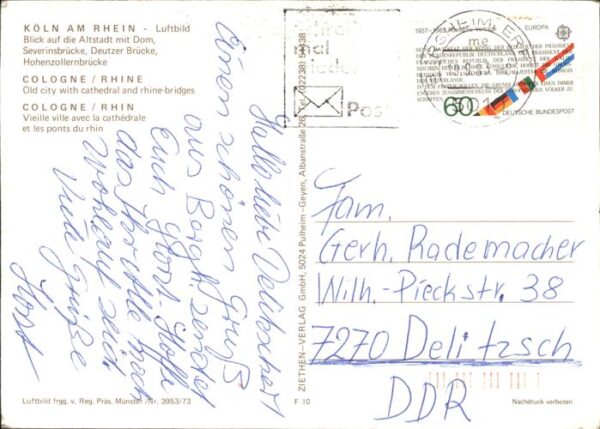 KÖLN AM RHEIN - Luftbild
Blick auf die Altstadt mit Dom,
Severinsbrücke, Deutzer Brücke,
Hohenzollernbrücke
COLOGNE / RHINE
Old city with cathedral and rhine-bridges
COLOGNE / RHIN
Vieille ville avec la cathédrale
et les ponts du rhin
mal
wieder
Post
1957-1982
EUROPA
60
DEUTSCHE BUNDESPOST
Hallo liebe Delitzscher!
Einen schönen Gruß
aus sendet
Euch Horst. Hoffe
das Ihr alle noch
Wohlauf seid.
Viele Grüße
Horst
ZIETHEN-VERLAG GmbH, 5024 Pulheim-Geyen, Albanstraße
Fam.
Gerh. Rademacher
Wilh.-Pieckstr. 38
7270 Delitzsch
DDR
Luftbild frgg. v. Reg. Präs. Münster /Nr. 3953/73
F 10
Nachdruck verboten